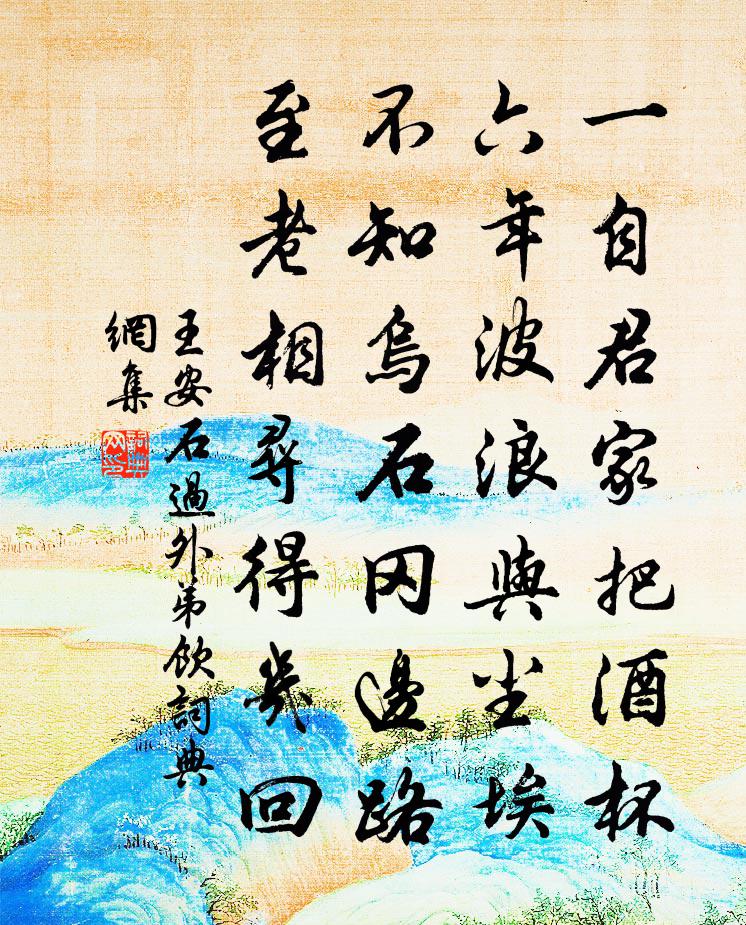 一自君家把酒杯
六年波浪與尘埃
不知烏石冈邊路
至老相尋得幾回
王安石過外弟飲詞典
網集